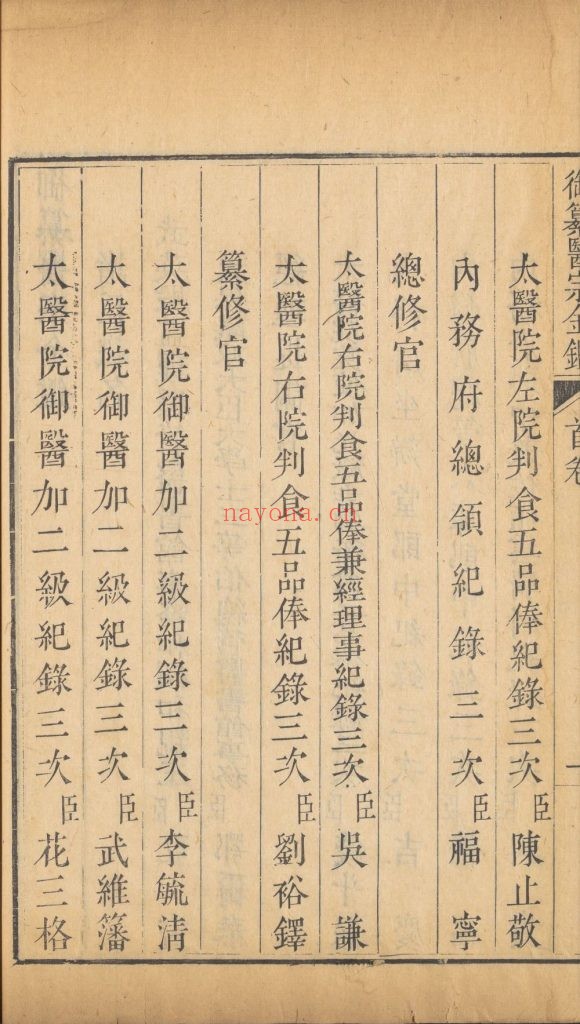 御纂醫宗金鑑 首卷 一
太醫院左院判食五品俸紀錄三次臣陳止敬
內務府總領紀錄三次臣福寧
總修官
太醫院右院判食五品俸兼經理事紀錄三次臣吳謙
太醫院右院判食五品俸紀錄三次臣劉裕鐸
纂修官
太醫院御醫加二級紀錄三次臣李毓清
太醫院御醫加二級紀錄三次臣武維藩
太醫院御醫加二級紀錄三次臣花三格
nayona.cn